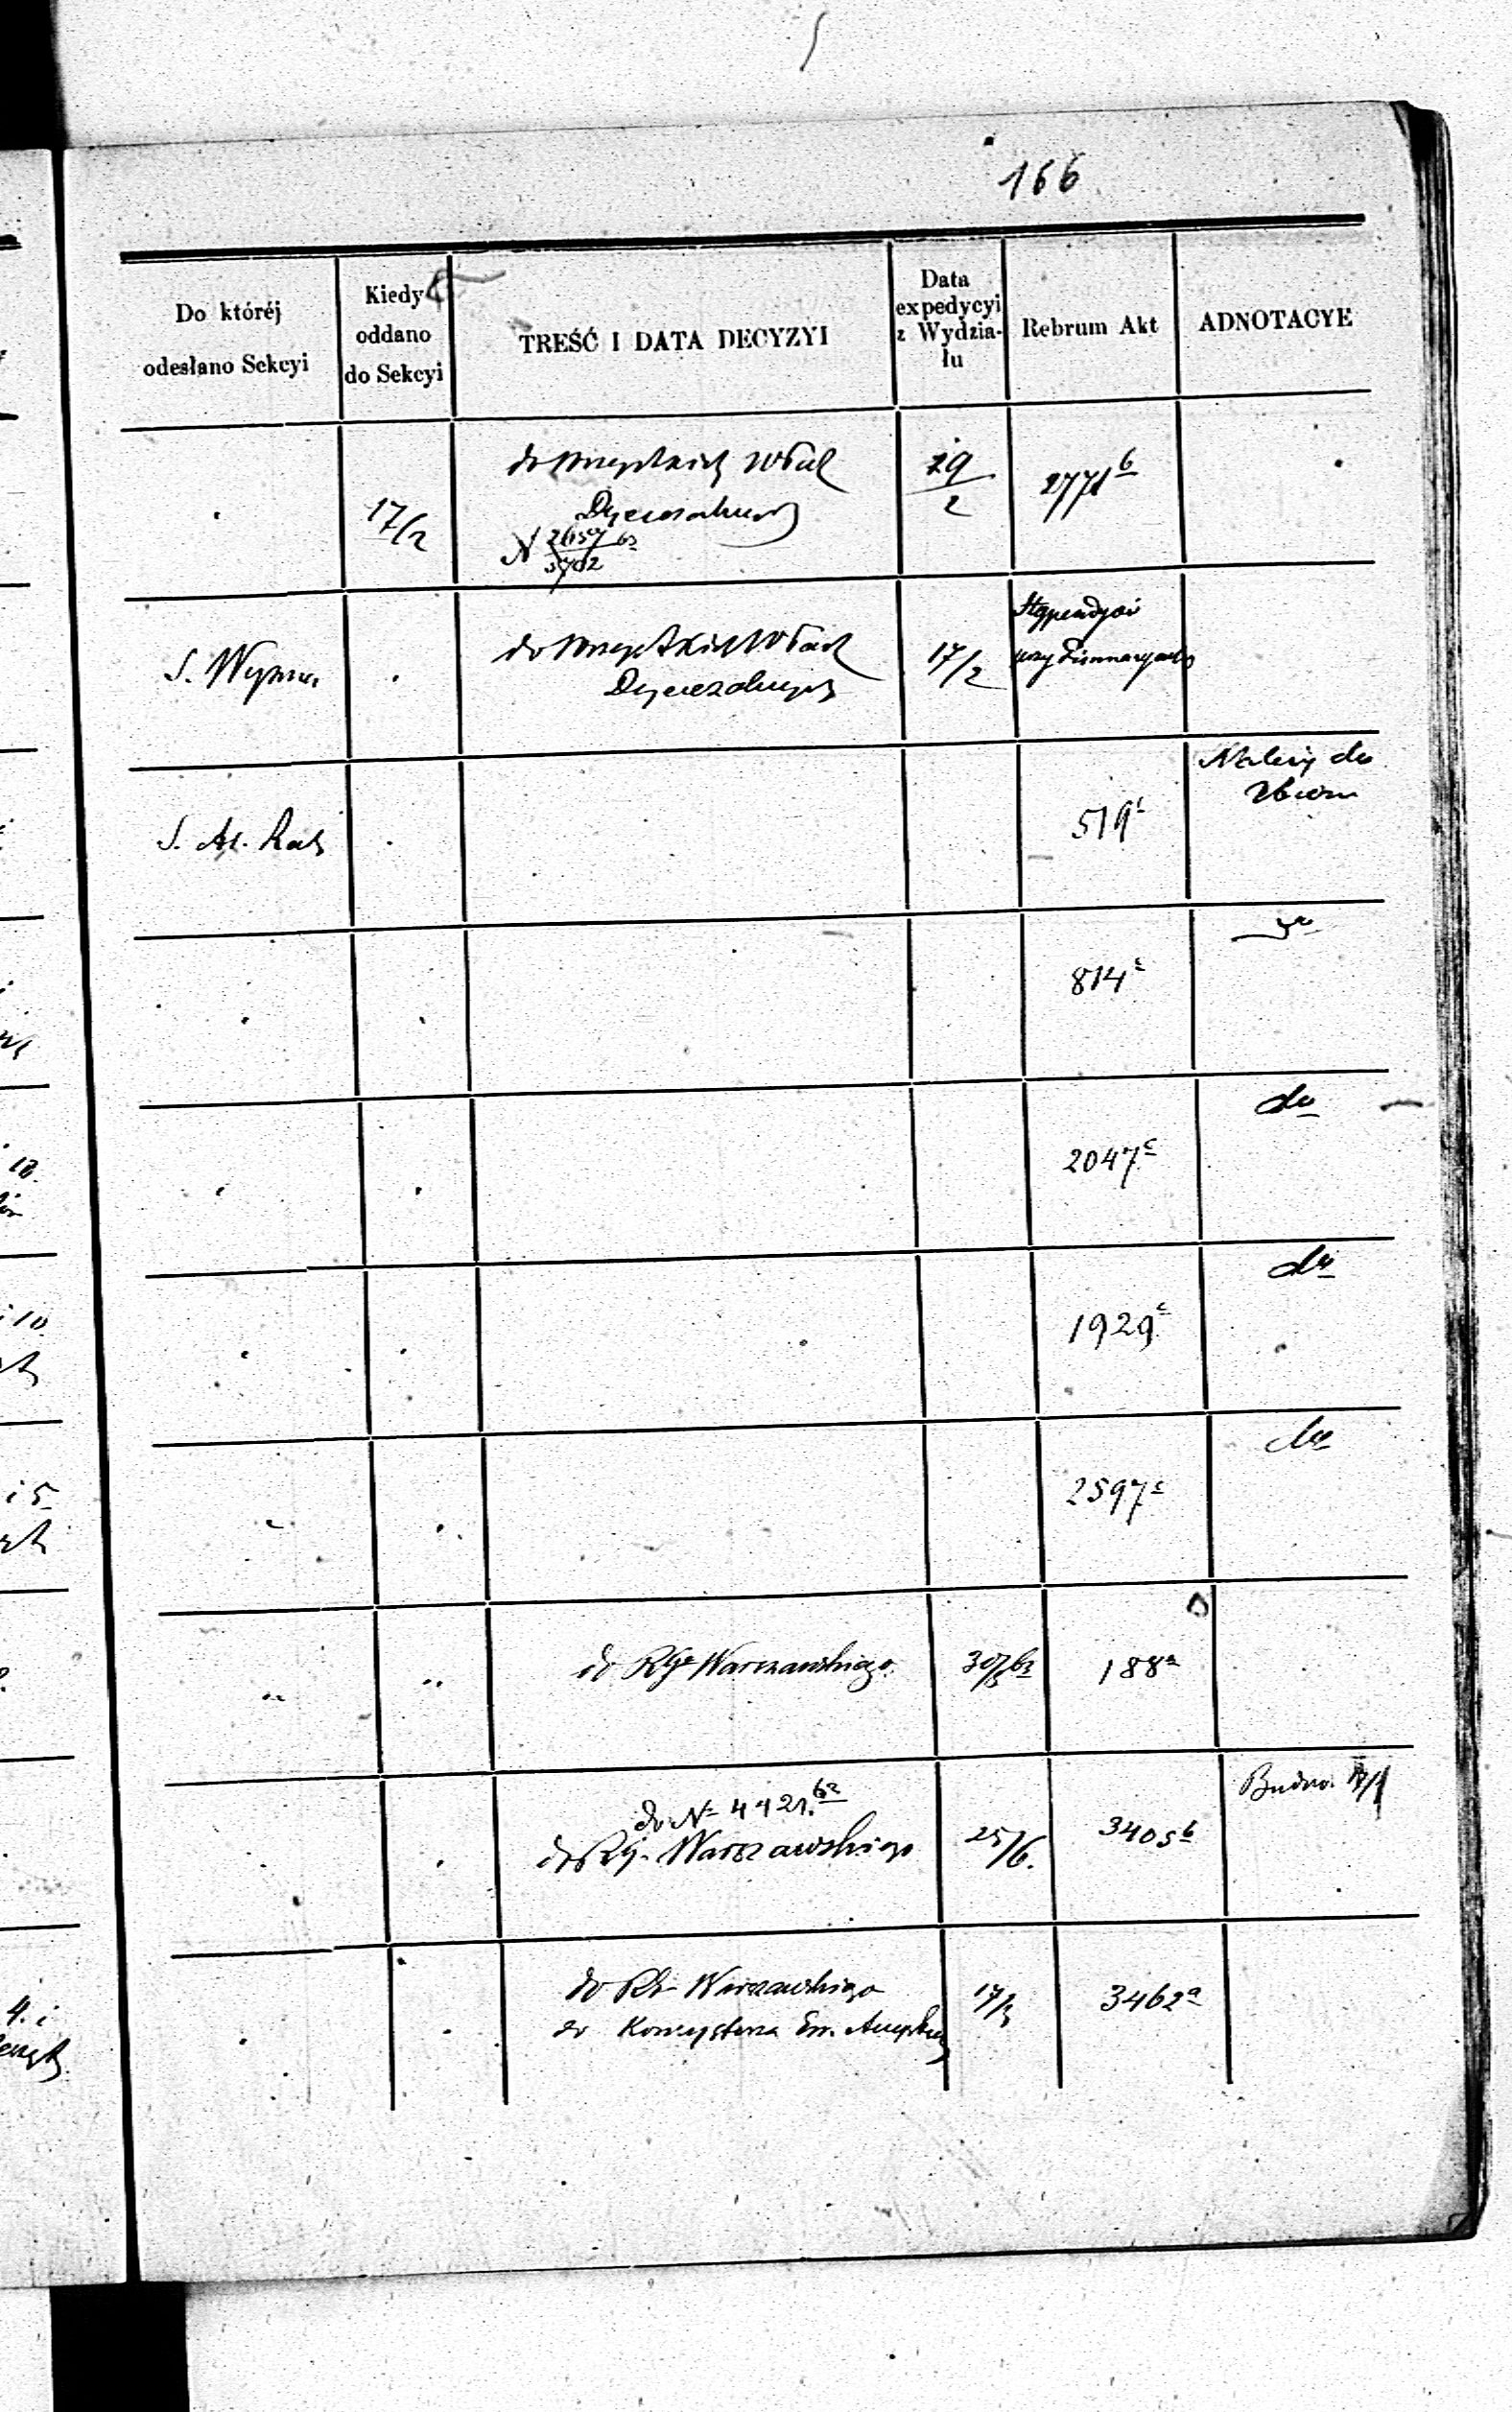 166
Do któréj
odesłano Sekcyi
Kiedy
oddano
do Sekcyi
TREŚĆ I DATA DECYZYI
Data
expedycyi
z Wydzia-
łu
Rebrum Akt
ADNOTACYE
17/2
do wszystkich Wład
Dyecezalnych
29/2
2771 b
S. Wyzna.
do wszystkich Wład
Dyecezalnych
17/2
Stypendyów
przy
Należy do
zbioru
519 c
814 c
do
2047 c
do
1929 c
do
2597 c
do
do Rządu Warszawskiego
188 a
do № 4421. 62
do Rz. Warszawskiego
25/6.
3405 b
do Rz. Warszawskiego
do Konsystorza Ew. Augsburg
17/3
3462 a